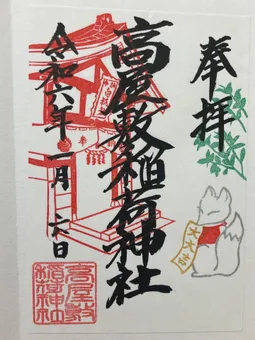 奉拝
高屋敷稲荷神社
令和六年一月
日
大大吉
高屋敷
稲荷神社